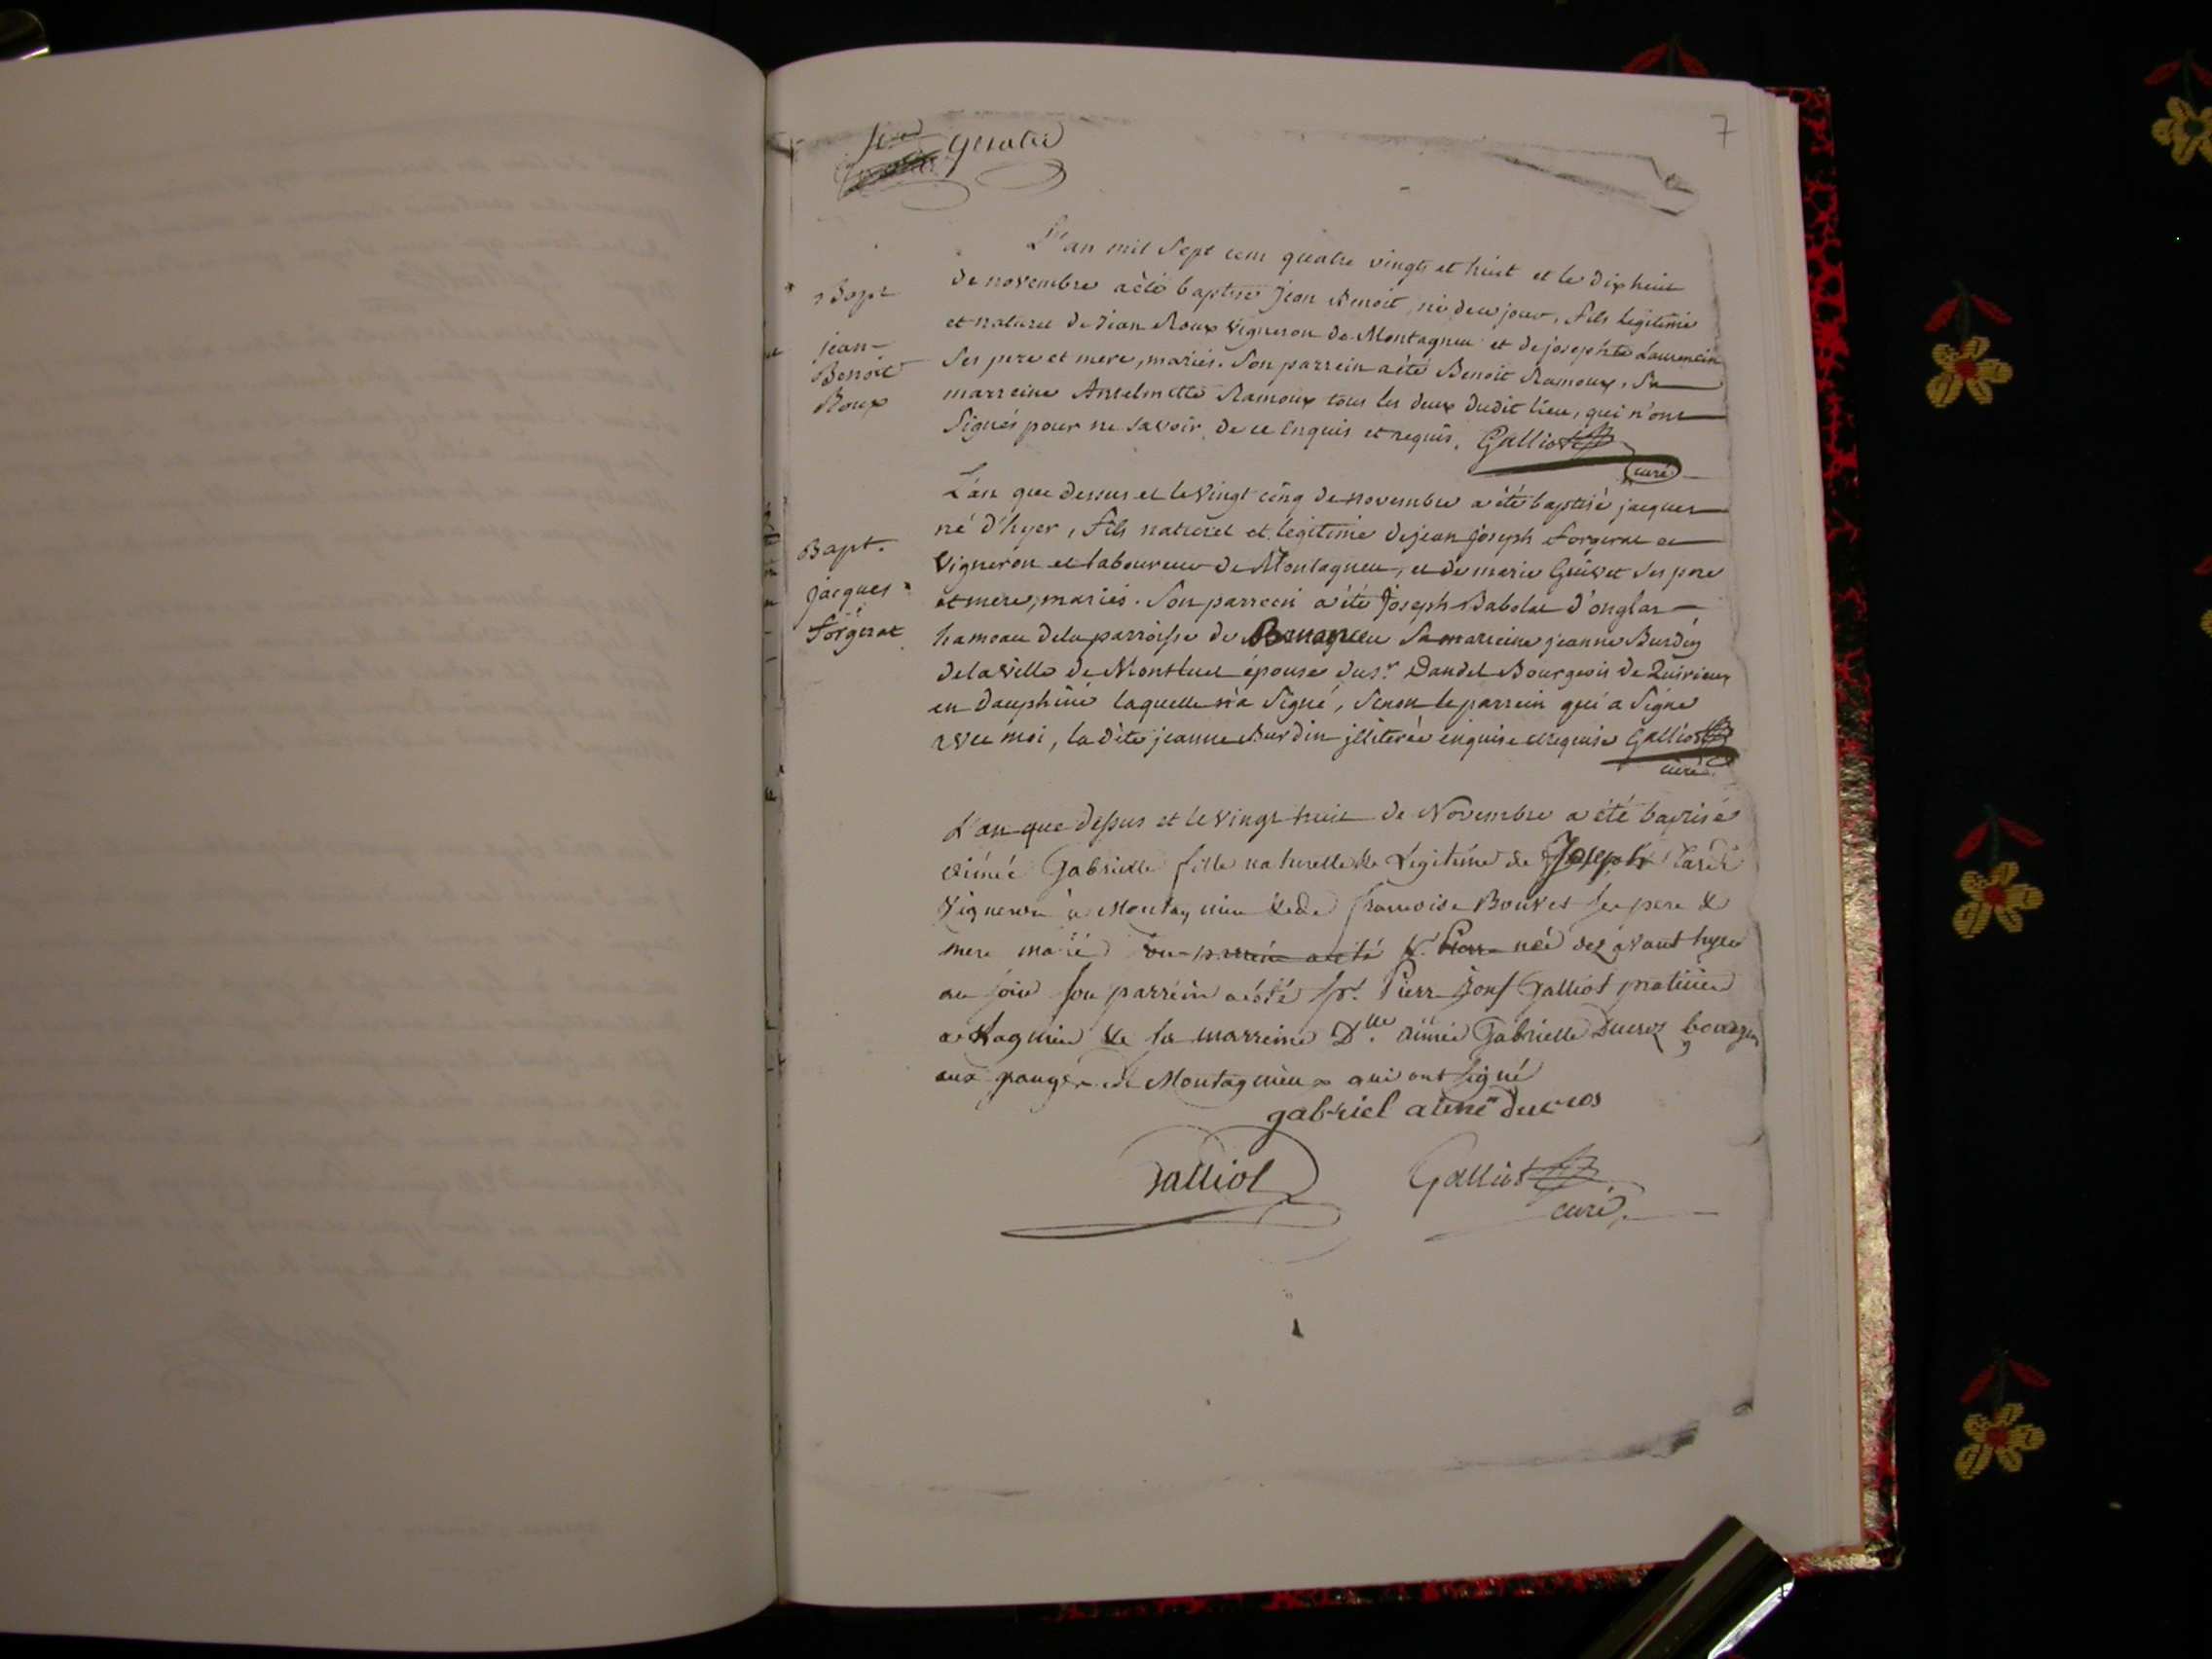 7
quatre
L'an mil sept cent quatre vingts et huit et le dix huit
Bapt
jean
Benoit
Roux
de novembre a été baptisé jean Benoit, né de ce jour, fils legitime
et naturel de Jean Roux vigneron de Montagneu et de josephte Laurencin
ses pere et mere, mariés. Son parrein a été Benoit Ramoux, sa
marreine Anselmette Ramoux tous les deux dudit lieu, qui n'ont
signés pour ne savoir, de ce enquis et requis. Galliot
curé
L'an que dessus et le vingt cinq de novembre a été baptisé jacques
Bapt.
jacques
forgerat
né d'hyer, fils naturel et legitime de jean joseph forgerat
vigneron et laboureur de Montagneu, et de marie ses pere
et mere, mariés. Son parrein a été joseph Babolat d'onglas
hameau de la parroisse de sa marreine jeanne Burdin
de la ville de Montluel épouse du sr. Dandel Bourgeois de Quirieux
en Dauphiné laquelle n'a signé, sinon le parrein qui a signé
avec moi, la dite jeanne Burdin illiterée enquise et requise Galliot
curé
L'an que dessus et le vingt huit de Novembre a été baptisé
aimée Gabrielle fille naturelle & legitime de Joseph
vigneron a Montagnieu & de francoise Bouvet ses pere &
mere marié son parrein a été sr. Pierre née dez avant hyer
au soir son parrein a été sr. Pierre Galliot praticien
a & sa marreine Dlle. aimée Gabrielle Ducroz
de Montagnieu qui ont signé
gabriel aimé ducros
Galliot
Galliot
curé